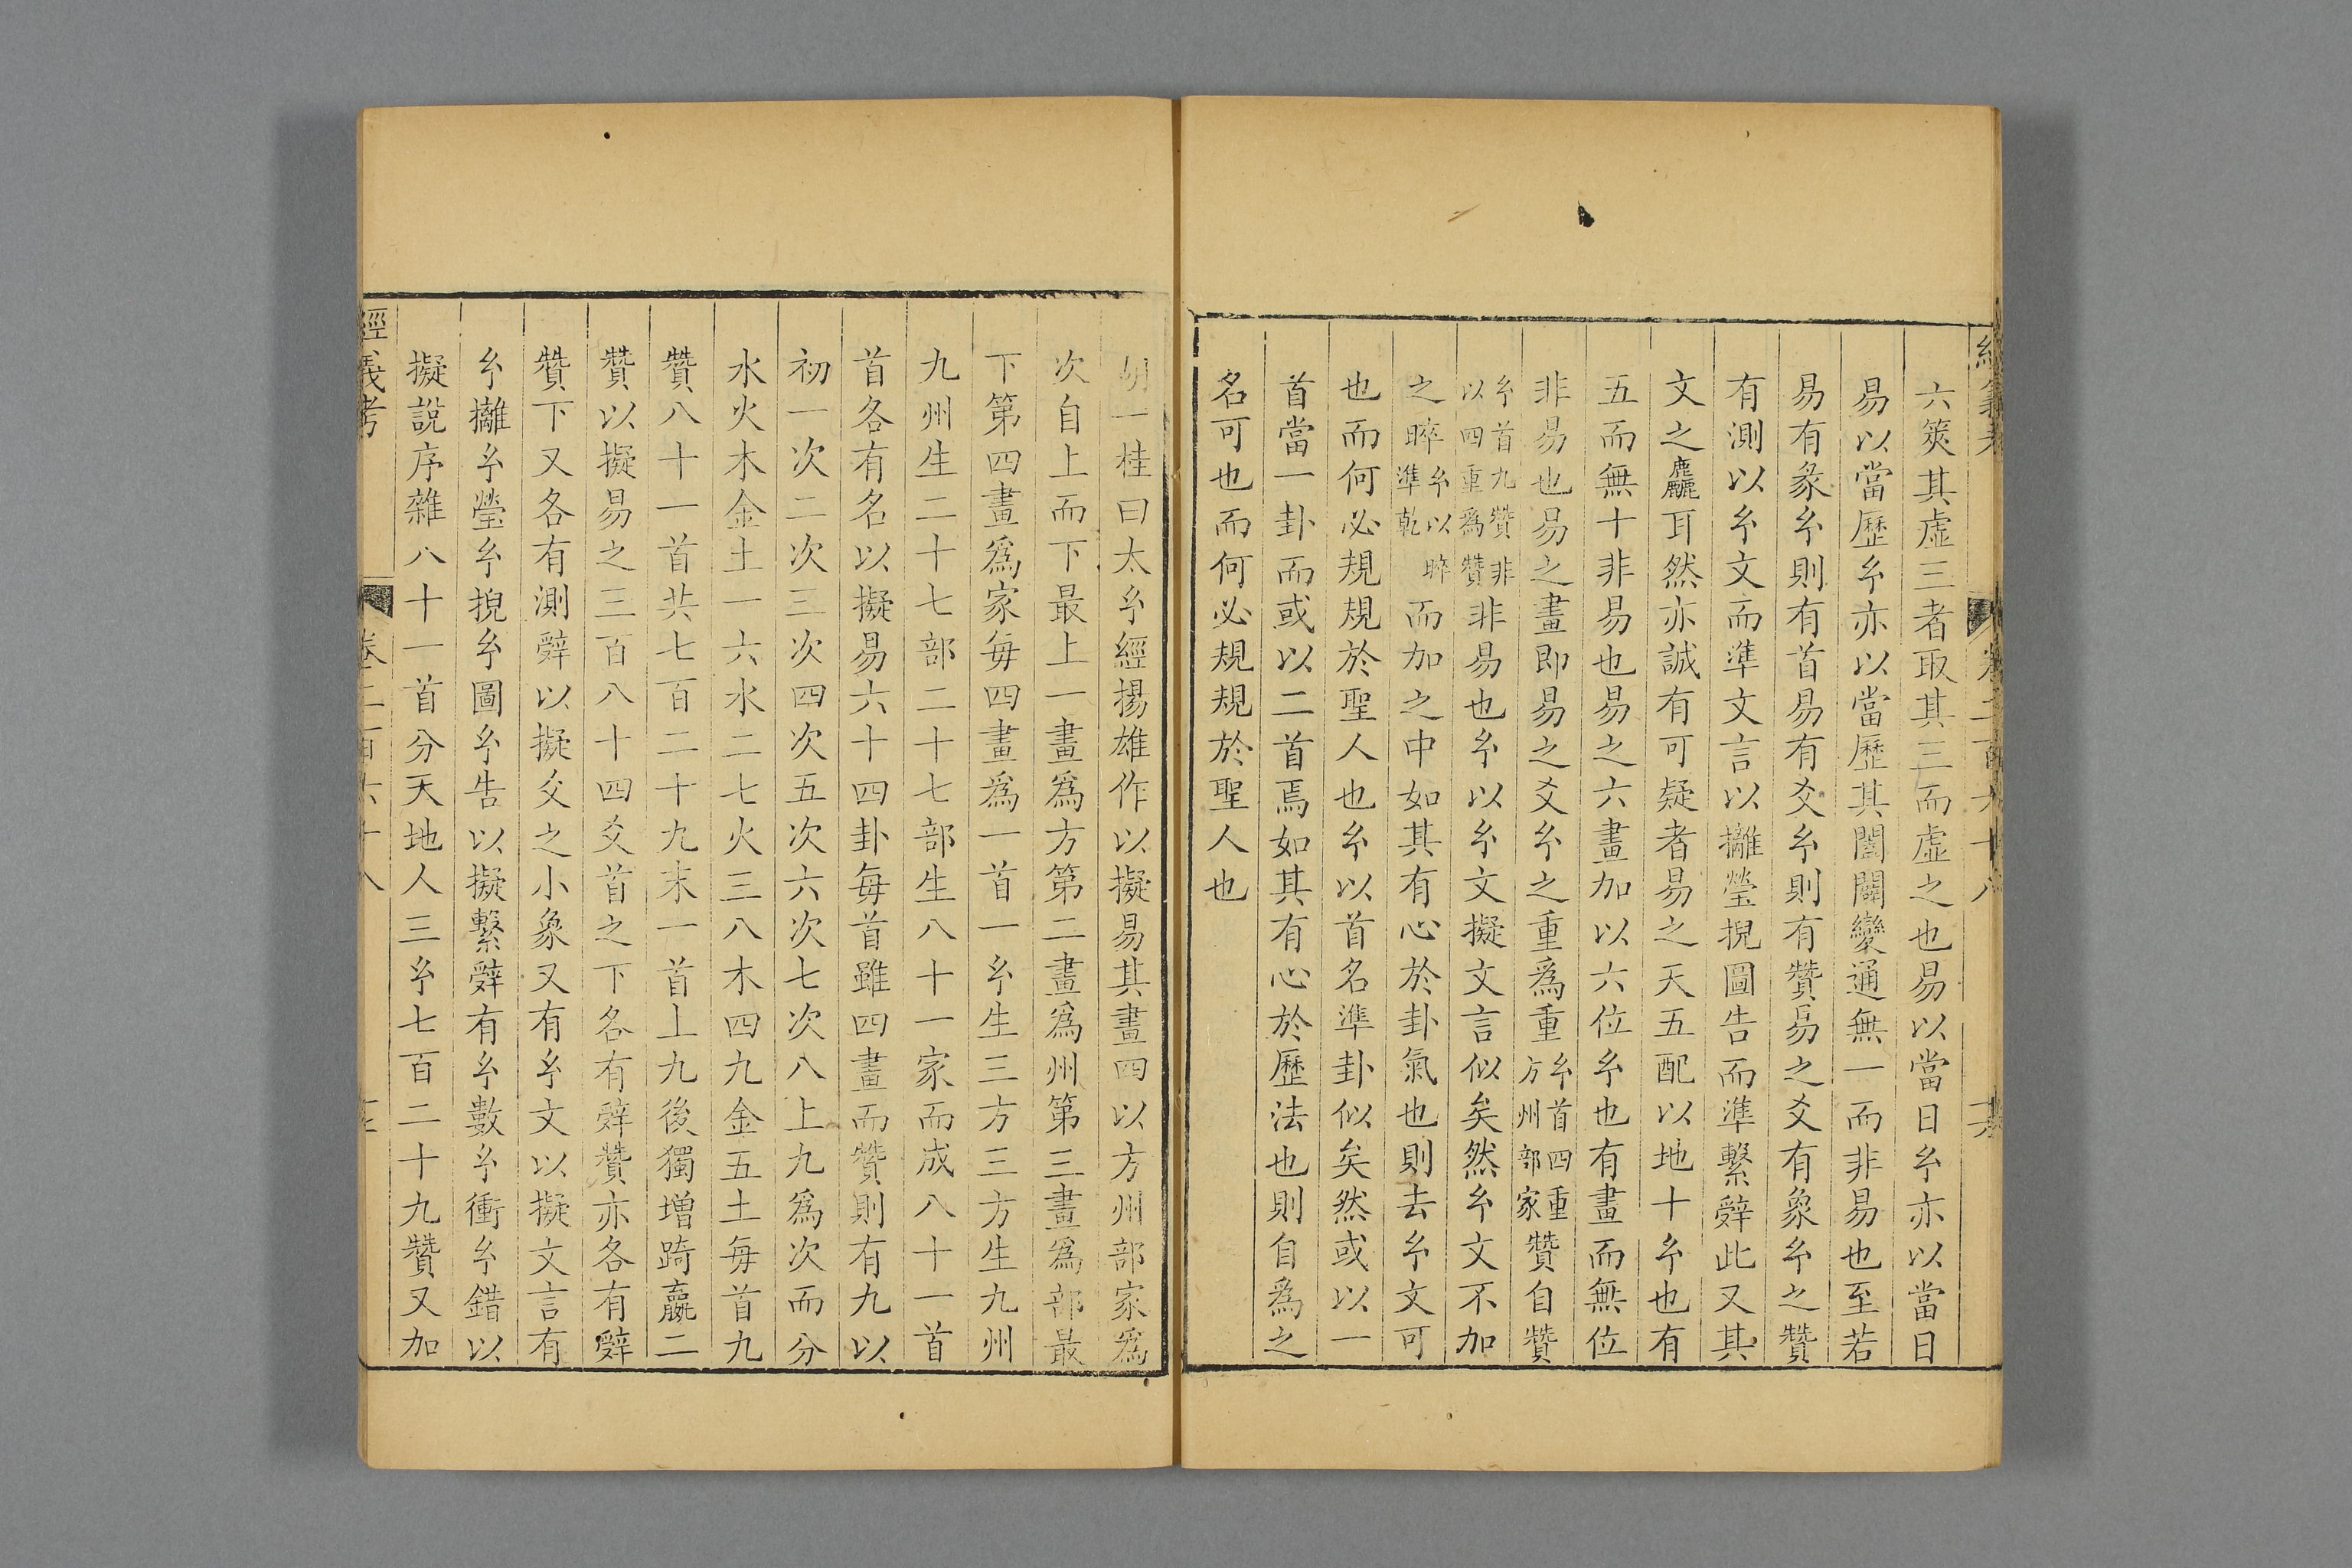 六筴其虛三者取其三而虛之也易以當日𤣥亦以當日
易以當歷𤣥亦以當歷其闔闢變通無一而非易也至若
易有彖𤣥則有首易有爻𤣥則有贊易之爻有象𤣥之贊
有測以𤣥文而準文言以攡瑩掜圖告而準繫辭此又其
文之麤耳然亦誠有可疑者易之天五配以地十𤣥也有
五而無十非易也易之六畫加以六位𤣥也有畫而無位
非易也易之畫即易之爻𤣥之重爲重𤣥首四重方州部家贊自贊
𤣥首九贊非以四重爲贊非易也𤣥以𤣥文擬文言似矣然𤣥文不加
之睟𤣥以睟準乾而加之中如其有心於卦氣也則去𤣥文可
也而何必規規於聖人也𤣥以首名準卦似矣然或以一
首當一卦而或以二首焉如其有心於歷法也則自爲之
名可也而何必規規於聖人也
胡一桂曰太𤣥經揚雄作以擬易其畫四以方州部家爲
次自上而下最上一畫爲方第二畫爲州第三畫爲部最
下第四畫爲家每四畫爲一首一𤣥生三方三方生九州
九州生二十七部二十七部生八十一家而成八十一首
首各有名以擬易六十四卦每首雖四畫而贊則有九以
初一次二次三次四次五次六次七次八上九爲次而分
水火木金土一六水二七火三八木四九金五土每首九
贊八十一首共七百二十九末一首上九後獨增踦嬴二
贊以擬易之三百八十四爻首之下各有辭贊亦各有辭
贊下又各有測辭以擬爻之小象又有𤣥文以擬文言有
𤣥攡𤣥瑩𤣥掜𤣥圖𤣥告以擬繫辭有𤣥數𤣥衝𤣥錯以
擬說序雜八十一首分天地人三𤣥七百二十九贊又加
經義考 卷二百六十八